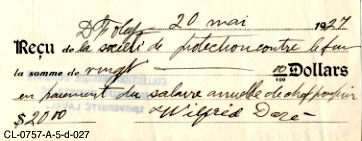 20 mai 1927
Reçu de la société de protection contre le feu
la somme de vingt 00/100 Dollars
en paiement du salaire annuel de chef pompier
$20.00 Wilfrid
CL-0757-A-5-d-027